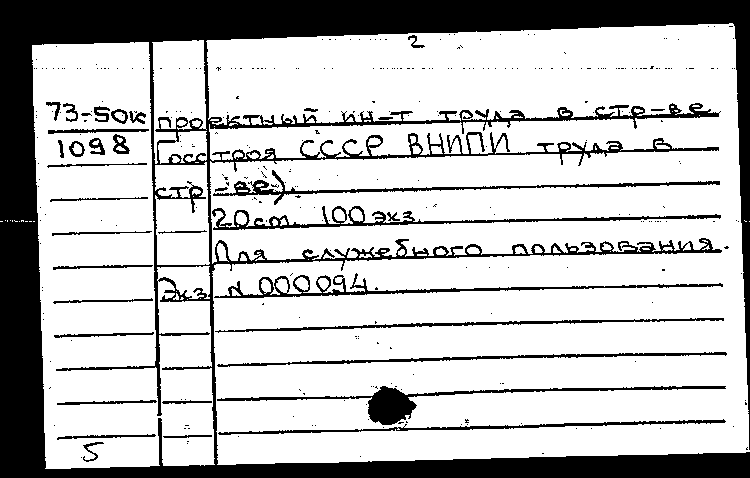 2
73-50к проектный ин-т труда в стр-ве
1098 Госстроя СССР ВНИПИ труда в
стр-ве).
20 см. 100 экз.
Для служебного пользования.
Экз. N 000094.
5